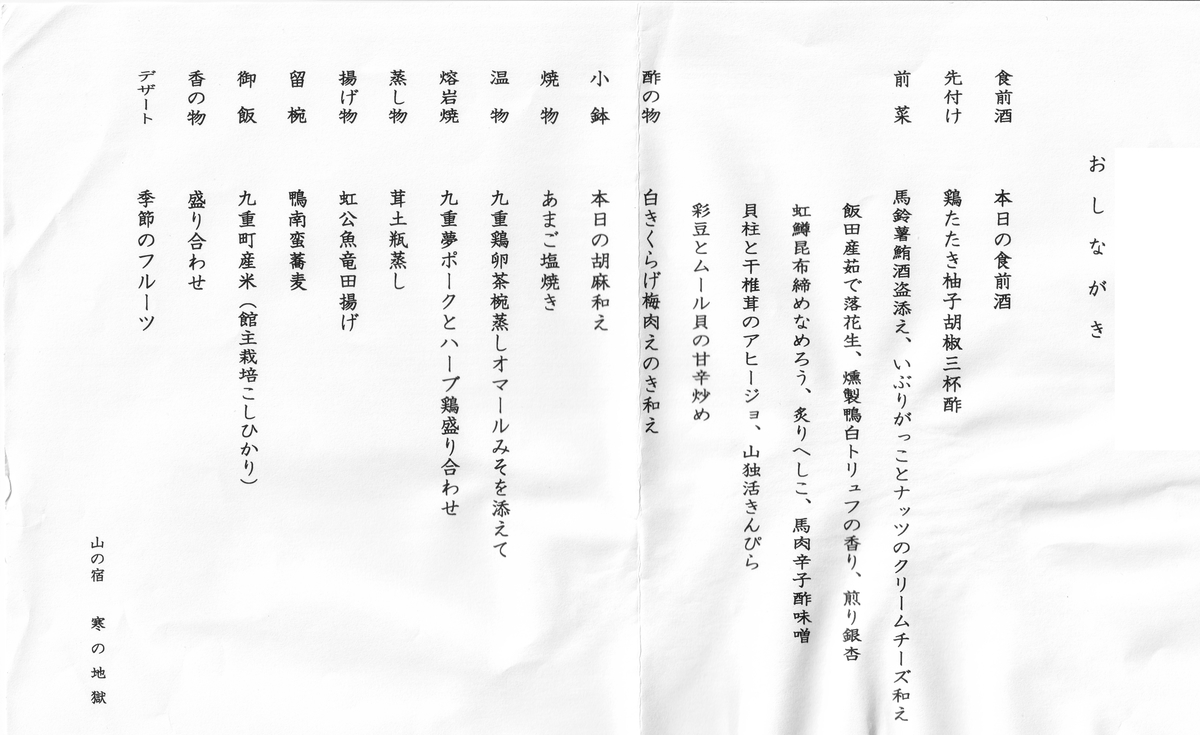 おしながき
食前酒 本日の食前酒
先付け 鶏たたき柚子胡椒三杯酢
前菜 馬鈴薯鮪酒盗添え、いぶりがっことナッツのクリームチーズ和え
飯田産茹で落花生、燻製鴨白トリュフの香り、煎り銀杏
虹鱒昆布締めなめろう、炙りへしこ、馬肉辛子酢味噌
貝柱と干椎茸のアヒージョ、山独活きんぴら
彩豆とムール貝の甘辛炒め
酢の物 白きくらげ梅肉えのき和え
小鉢 本日の胡麻和え
焼物 あまご塩焼き
温物 九重鶏卵茶椀蒸しオマールみそを添えて
熔岩焼 九重夢ポークとハーブ鶏盛り合わせ
蒸し物 茸土瓶蒸し
揚げ物 虹公魚竜田揚げ
留椀 鴨南蛮蕎麦
御飯 九重町産米（館主栽培こしひかり）
香の物 盛り合わせ
デザート 季節のフルーツ
山の宿 寒の地獄